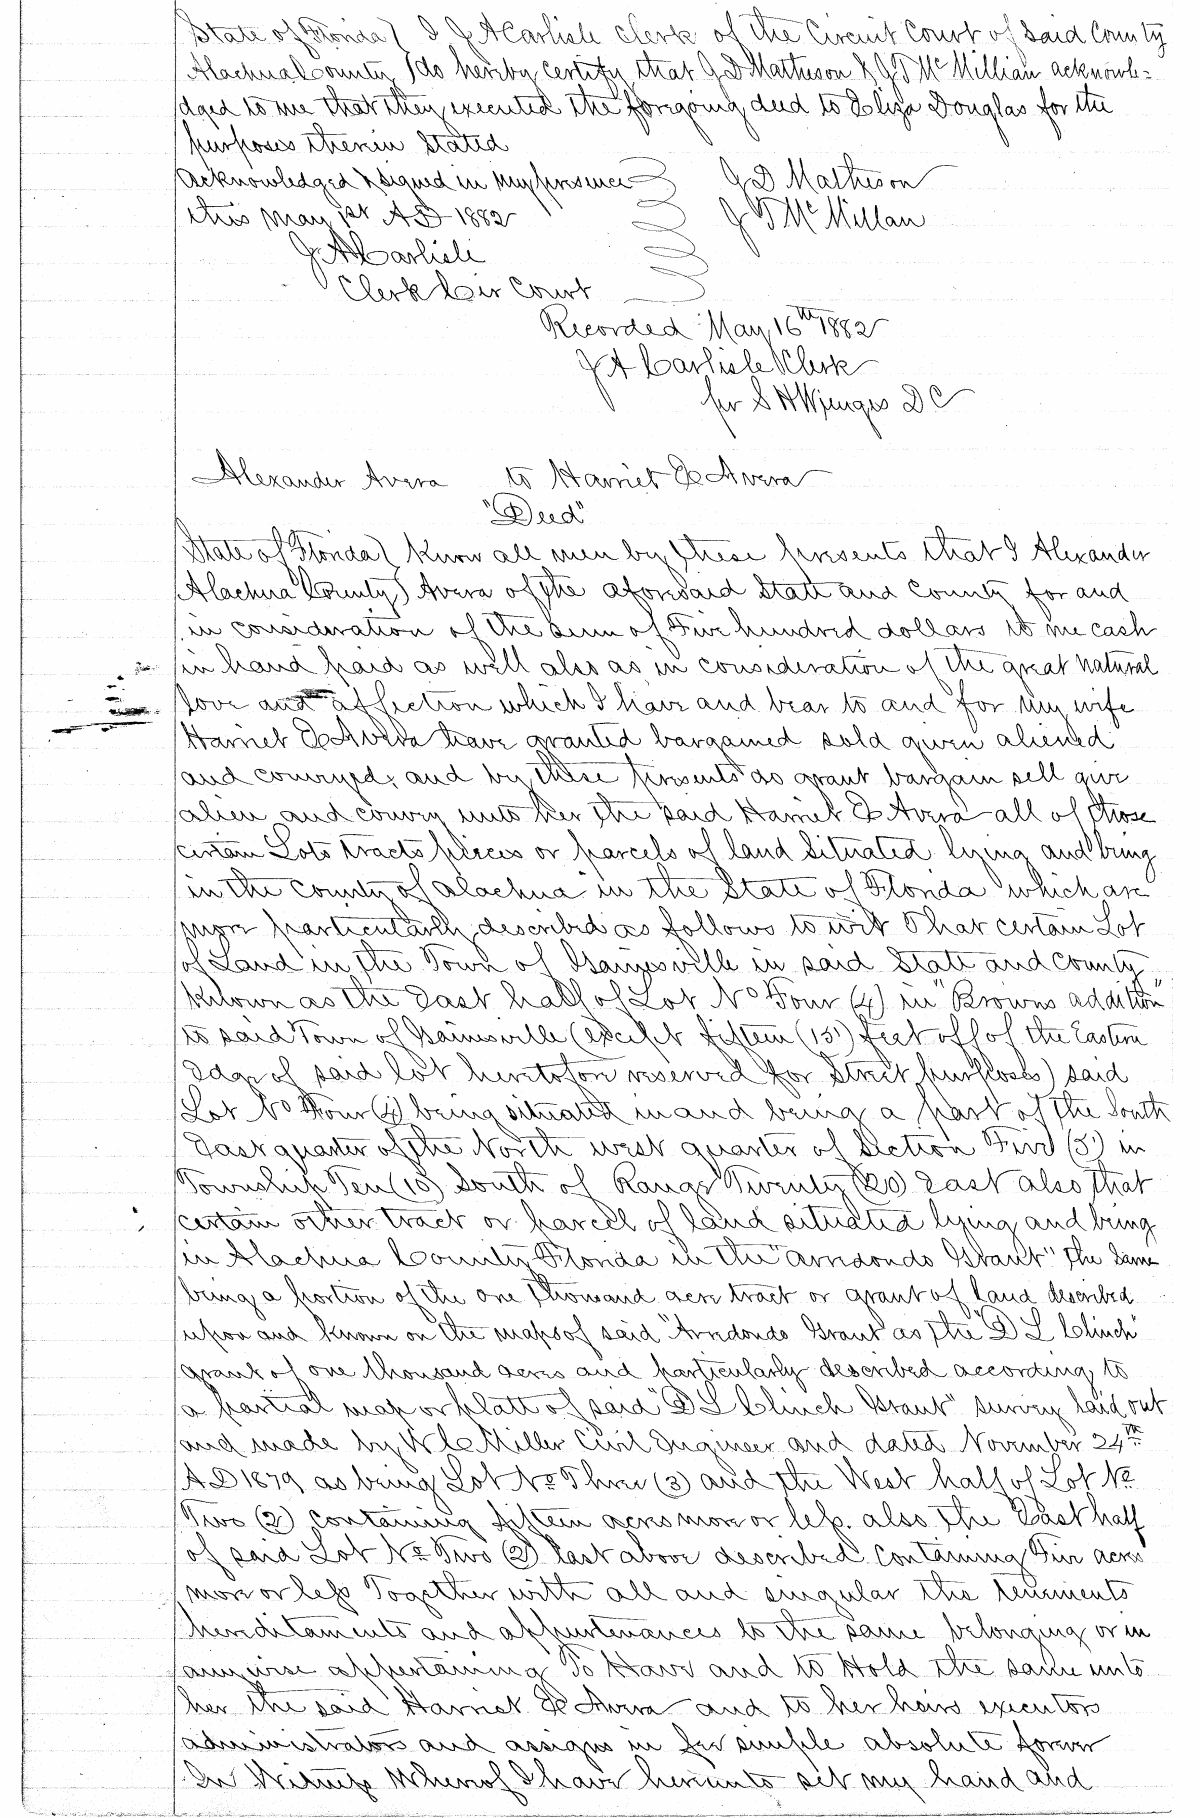 State of Florida } I J A Carlisle clerk of the Circuit Court of said County
Alachua County } do hereby certify that J D Matheson & J T McMillian acknowle=
dged to me that they executed the foregoing deed to Eliza Douglas for the
purposes therein stated
Acknowledged & signed in my presence J D Matheson
this May 1st A D 1882 J T McMillan
J A Carlisle
Clerk Cir Court
Recorded May 16th 1882
J A Carlisle Clerk
per S H Wienges D C
Alexander Avera to Harriet E Avera
"Deed"
State of Florida } Know all men by these presents that I Alexander
Alachua County } Avera of the aforesaid State and County for and
in consideration of the sum of Five hundred dollars to me cash
in hand paid as well also as in consideration of the great natural
love and affection which I have and bear to and for my wife
Harriet E Avera have granted bargained sold given aliened
and conveyed, and by these presents do grant bargain sell give
alien and convey unto her the said Harriet E Avera all of those
certain Lots tracts pieces or parcels of land situated lying and being
in the County of Alachua in the State of Florida which are
more particularly described as follows to wit That certain Lot
of Land in the Town of Gainesville in said State and County
known as the East half of Lot No Four (4) in "Browns addition"
to said Town of Gainesville (except fifteen (15) feet off of the Eastern
Edge of said lot heretofore reserved for Street purposes) said
Lot No Four (4) being situated in and being a part of the South
East quarter of the North west quarter of Section Five (5) in
Township Ten (10) South of Range Twenty (20) East also that
certain other tract or parcel of land situated lying and being
in Alachua County Florida in the "Arredondo Grant" the same
being a portion of the one thousand acre tract or grant of land described
upon and known on the maps of said "Arredondo Grant" as the "D L Clinch"
grant of one thousand acres and particularly described according to
a partial map or platt of said "D L Clinch Grant" survey laid out
and made by W C Miller Civil Engineer and dated November 24th
A D 1879 as being Lot No Three (3) and the West half of Lot No
Two (2) containing fifteen acres more or less. also the East half
of said Lot No Two (2) last above described containing Five acres
more or less Together with all and singular the tenements
hereditaments and appurtenances to the same belonging or in
anywise appertaining To Have and to Hold the same unto
her the said Harriet E Avera and to her heirs executors
administrators and assigns in fee simple absolute forever
In Witness Whereof I have hereunto set my hand and